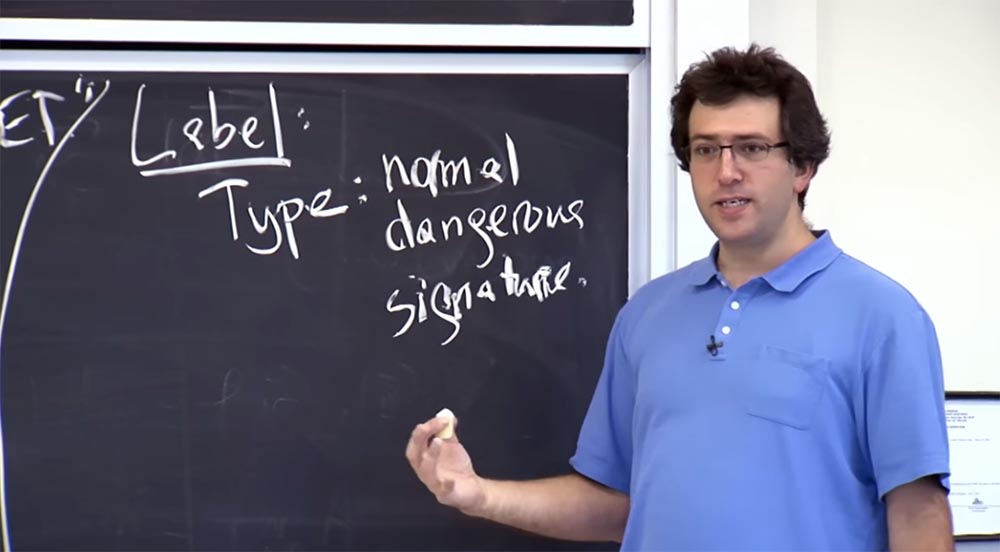 ET"
Label:
Type: normal
dangerous
signature.